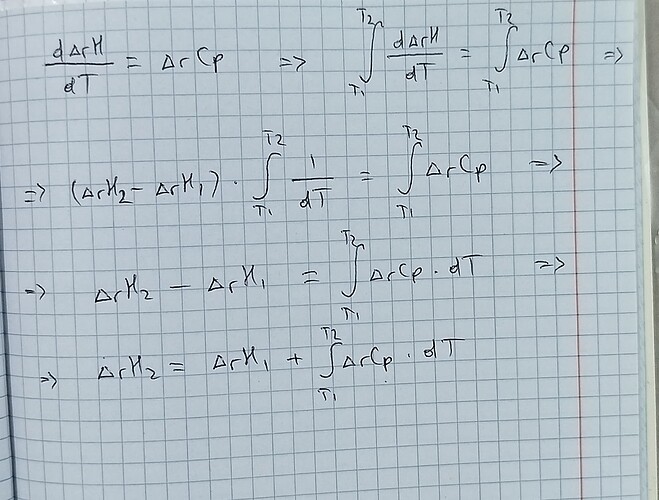 dΔrH/dT = ΔrCp => ∫_{T1}^{T2} dΔrH/dT = ∫_{T1}^{T2} ΔrCp =>
=> (ΔrH₂ - ΔrH₁) · ∫_{T1}^{T2} 1/dT = ∫_{T1}^{T2} ΔrCp =>
=> ΔrH₂ - ΔrH₁ = ∫_{T1}^{T2} ΔrCp · dT =>
=> ΔrH₂ = ΔrH₁ + ∫_{T1}^{T2} ΔrCp · dT